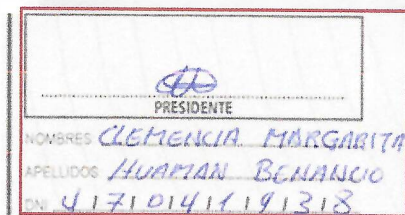 PRESIDENTE
NOMBRES CLEMENCIA MARGARITA
APELLIDOS HUAMAN BENANCIO
DNI 47041938